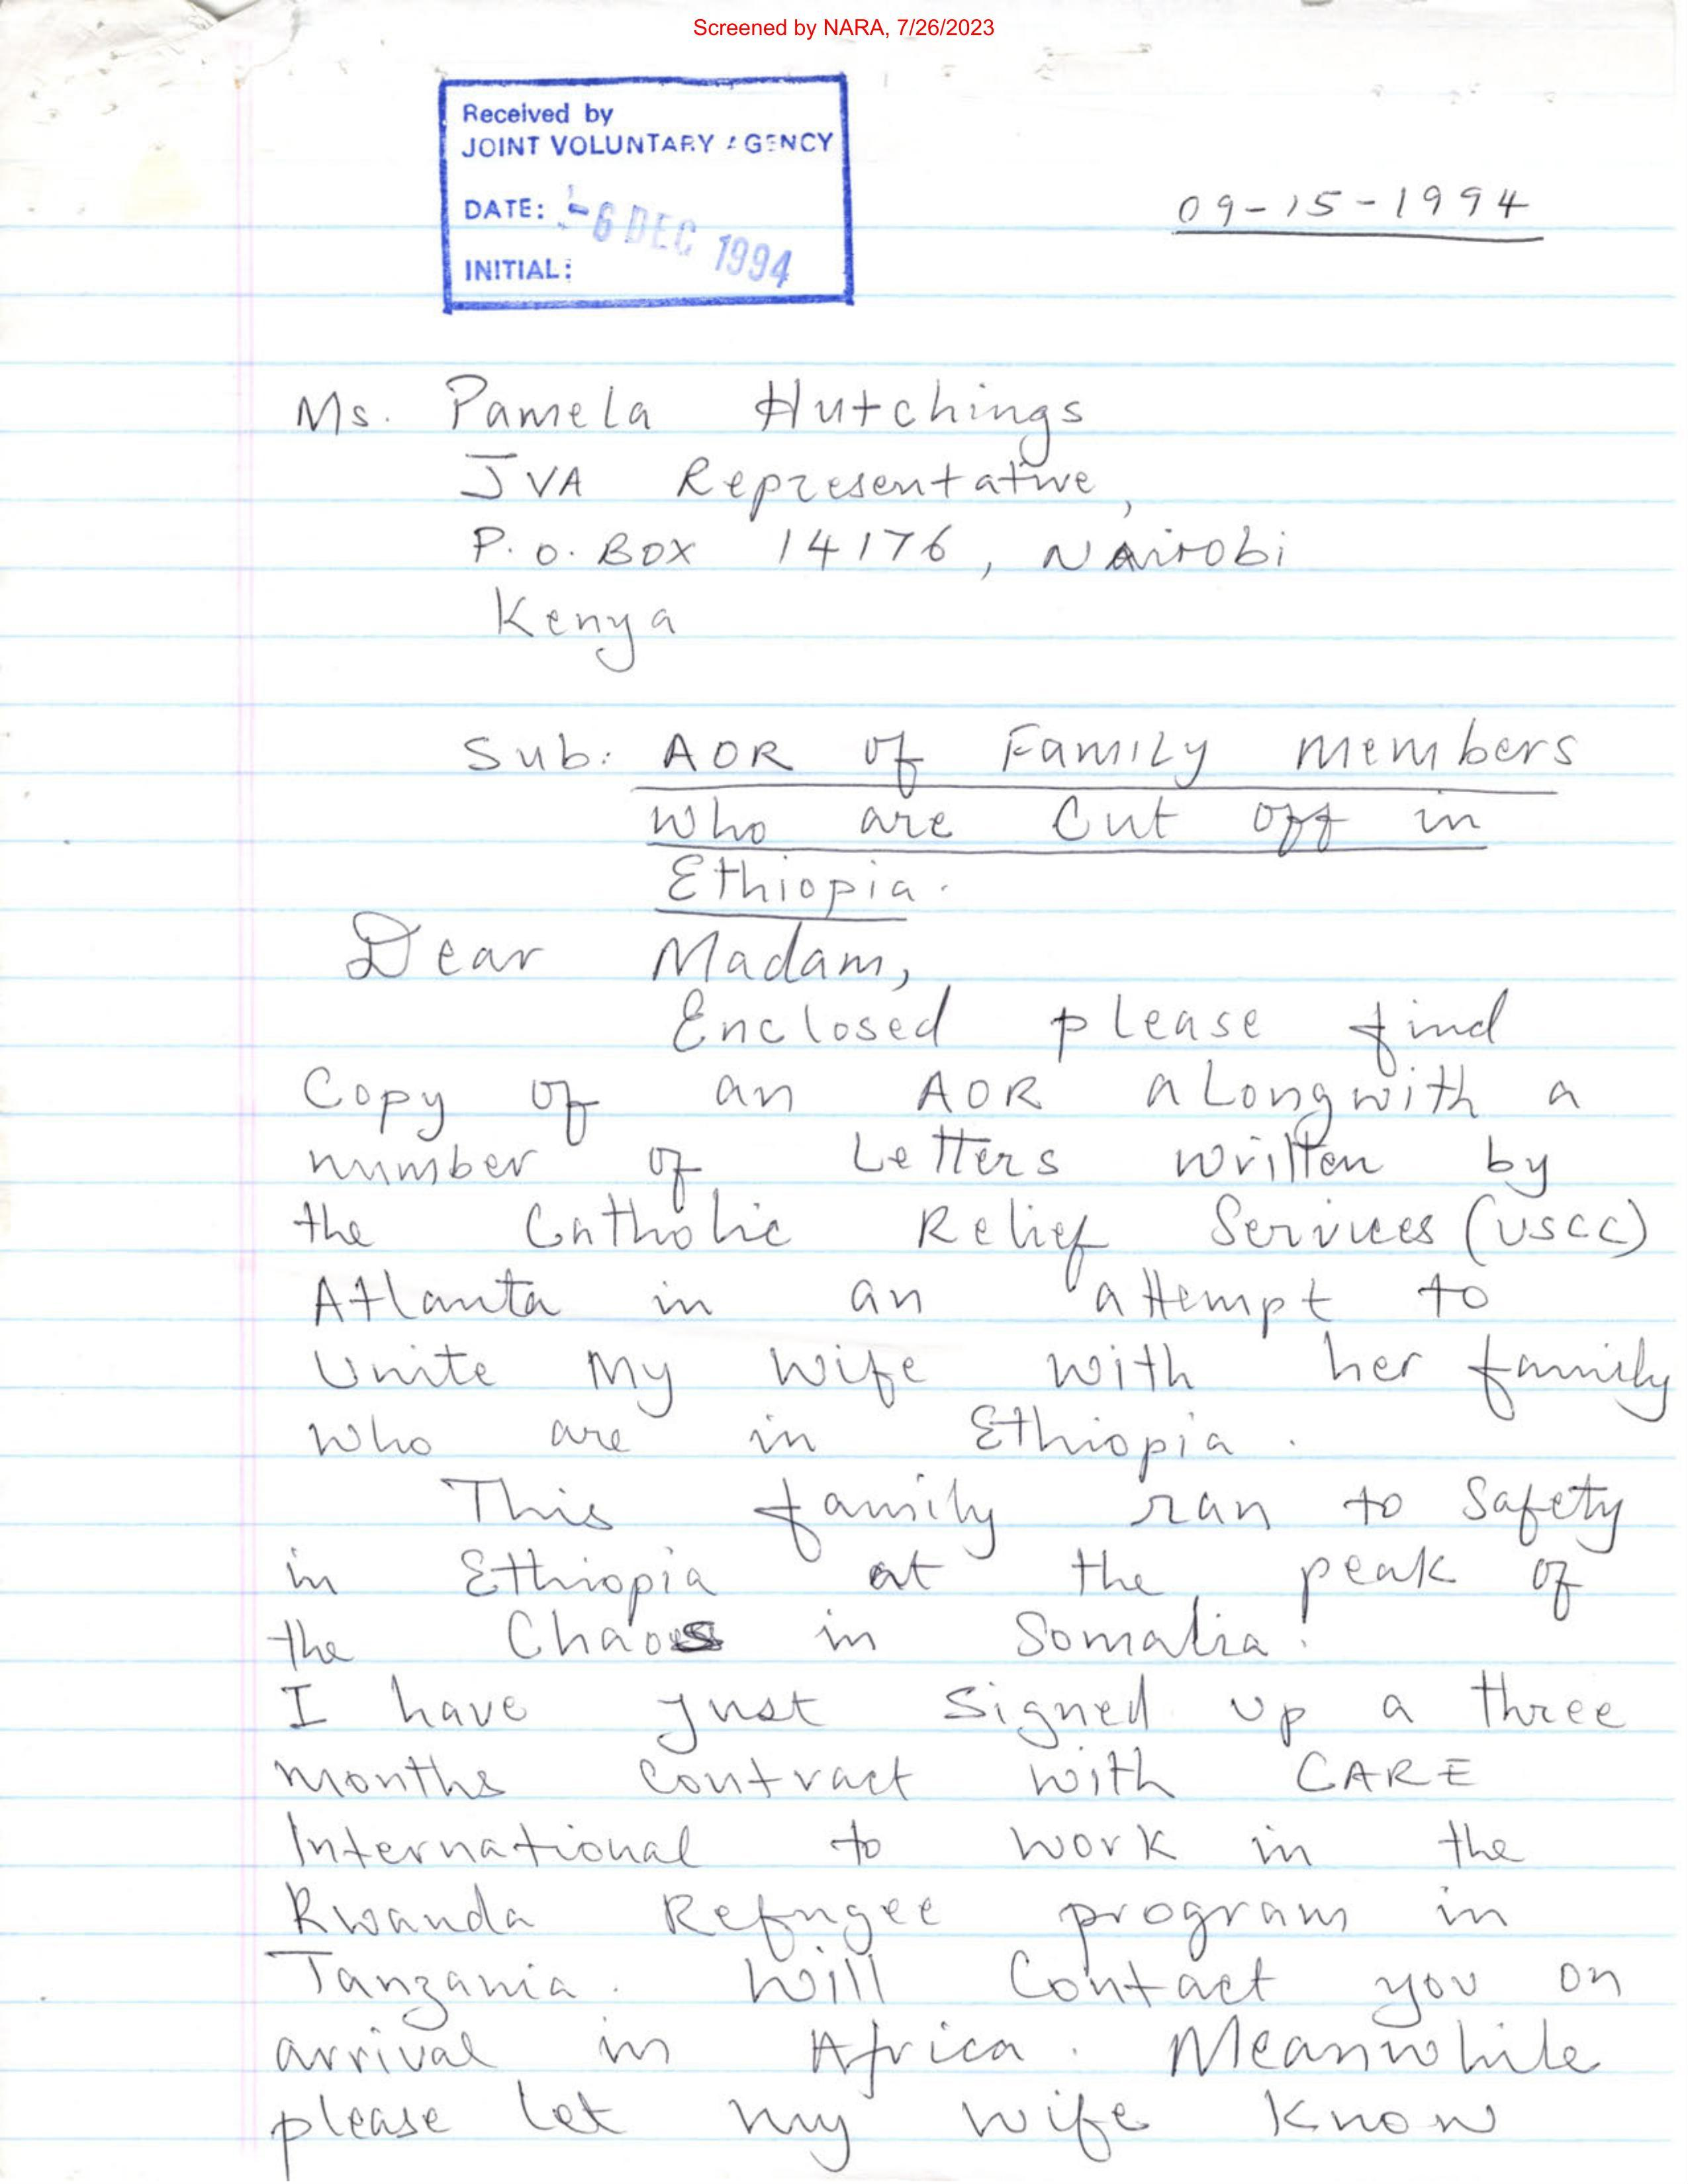 Screened by NARA, 7/26/2023
Received by
JOINT VOLUNTARY AGENCY
DATE: -6 DEC 1994
INITIAL:
09-15-1994
Ms. Pamela Hutchings
JVA Representative,
P.O. BOX 14176, Nairobi
Kenya
Sub: AOR of Family members
who are Cut off in
Ethiopia.
Dear Madam,
Enclosed please find
Copy of an AOR alongwith a
number of Letters written by
the Catholic Relief Services (USCC)
Atlanta in an attempt to
Unite My wife with her family
who are in Ethiopia.
This family ran to Safety
in Ethiopia at the peak of
the Chaos in Somalia!
I have just signed up a three
months contract with CARE
International to work in the
Rwanda Refugee program in
Tanzania. Will Contact you on
arrival in Africa. Meanwhile
please let my wife know